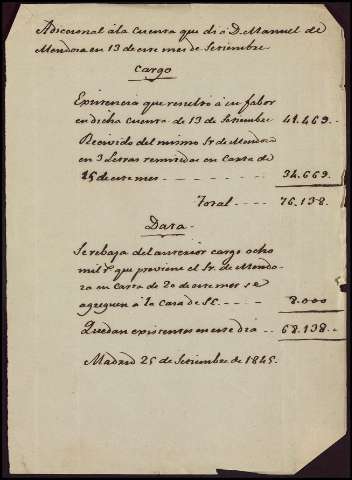 Adiccional á la Cuenta que dí á D. Manuel de
Mendoza en 13 de este mes de Setiembre
Cargo
Existencia que resultó á su fabor
en dicha Cuenta de 13 de Setiembre 41.469..
Recivido del mismo Sr. de Mendoza
en 3 Letras remitidas en Carta de
15 de este mes - - - - - 34.669.
Total - - - - 76.138.
Data.
Se rebaja del anterior cargo ocho
mil rs. que previene el Sr. de Mendo-
za en Carta de 20 de este mes se
agreguen á la Casa de - - - - 8.000
Quedan existentes en este dia .. 68.138..
Madrid 25 de Setiembre de 1845.